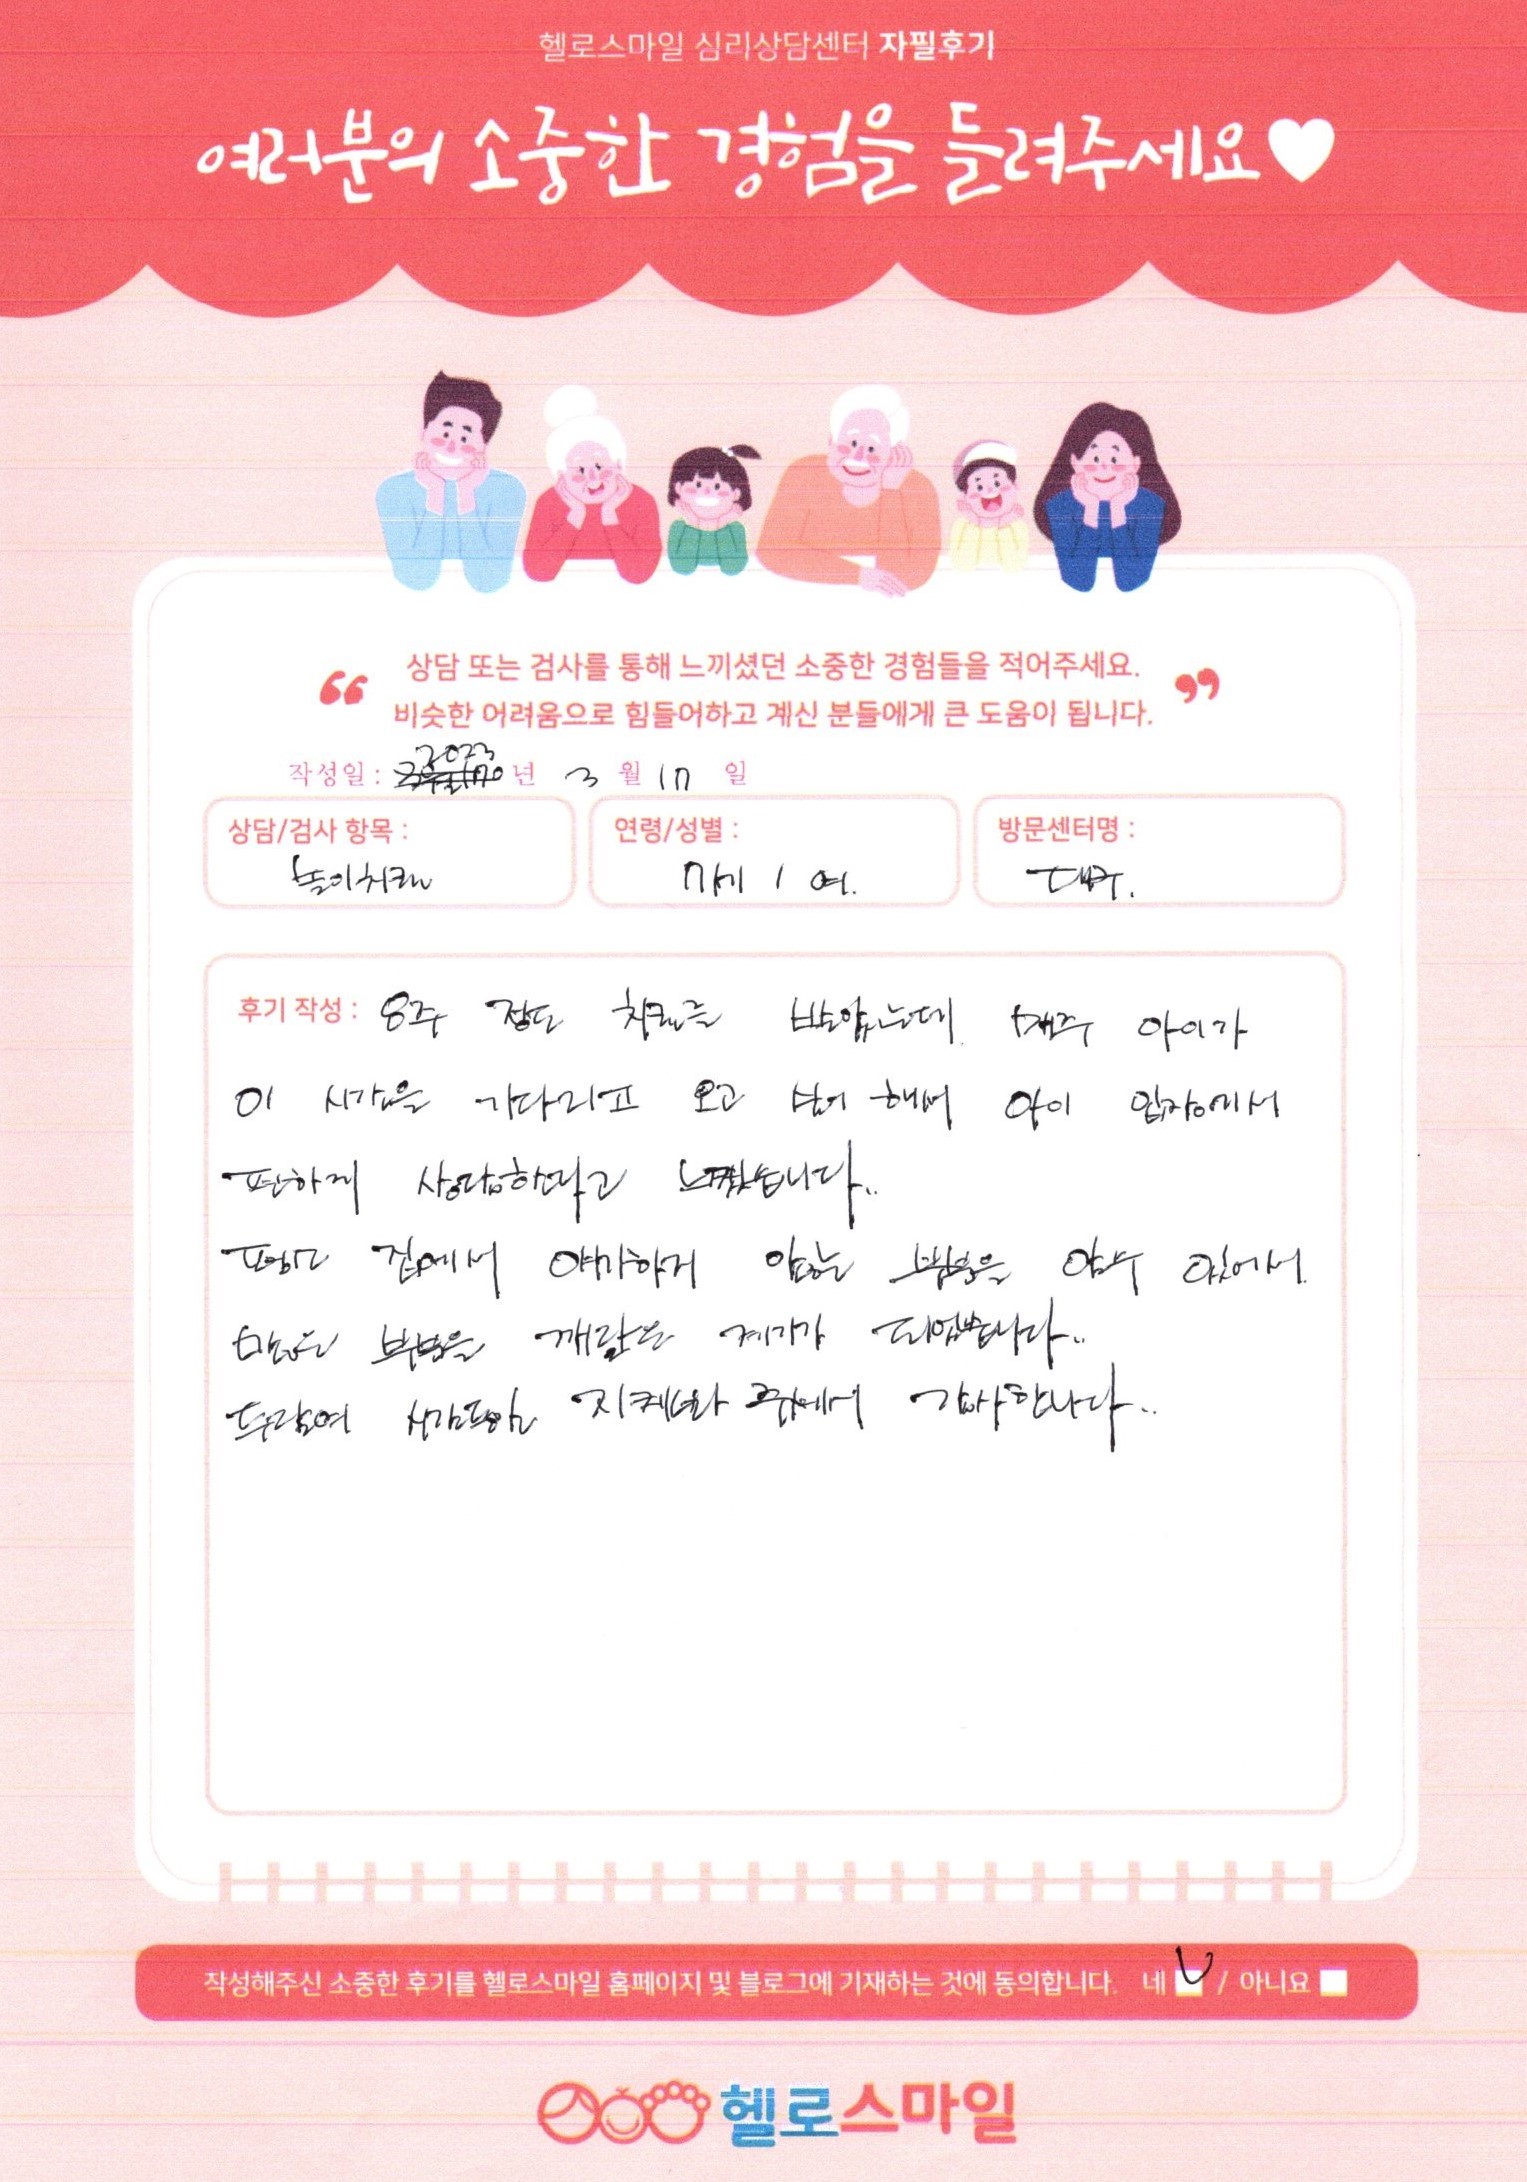 헬로스마일 심리상담센터 자필후기
여러분의 소중한 경험을 들려주세요
상담 또는 검사를 통해 느끼셨던 소중한 경험들을 적어주세요.
비슷한 어려움으로 힘들어하고 계신 분들에게 큰 도움이 됩니다.
작성일: 2023 년 3 월 17 일
상담/검사 항목 : 연령/성별 : 방문센터명 :
놀이치료 7세 / 여.
후기 작성 : 8주 정도 치료를 받았는데 매주 아이가
이 시간을 기다리고 오고 싶어 해서 아이 입장에서
편하게 상담한다고 느꼈습니다..
평소 집에서 얘기하지 않는 부분을 알수 있어서
많은 부분을 깨닫는 계기가 되었습니다..
감사합니다..
작성해주신 소중한 후기를 헬로스마일 홈페이지 및 블로그에 기재하는 것에 동의합니다. 네 / 아니요
헬로스마일